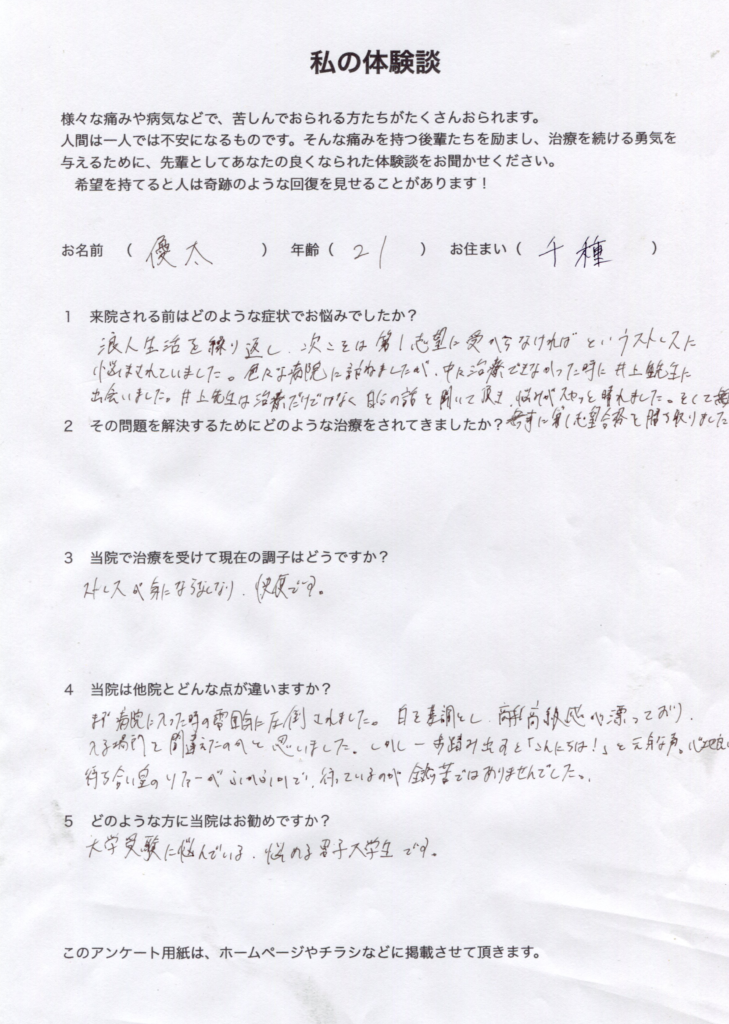 私の体験談
様々な痛みや病気などで、苦しんでおられる方たちがたくさんおられます。
人間は一人では不安になるものです。そんな痛みを持つ後輩たちを励まし、治療を続ける勇気を
与えるために、先輩としてあなたの良くなられた体験談をお聞かせください。
希望を持てると人は奇跡のような回復を見せることがあります！
お名前 （ 優太 ） 年齢（ 21 ） お住まい（ 千種 ）
1 来院される前はどのような症状でお悩みでしたか？
浪人生活を繰り返し、次こそは第1志望に受からなければというストレスに
悩まされていました。色々な病院に訪ねましたが、中々治療できなかった時に井上先生に
出会いました。井上先生は治療だけでなく自分の話を聞いて頂き、悩みがスカッと晴れました。そして
2 その問題を解決するためにどのような治療をされてきましたか？ 無事に第1志望合格を勝ち取りました
3 当院で治療を受けて現在の調子はどうですか？
ストレスが気にならなくなり、快便です。
4 当院は他院とどんな点が違いますか？
まず病院に入った時の雰囲気に圧倒されました。白を基調とし、高級感が漂っており、
入る場所を間違えたのかと思いました。しかし一歩踏み出すと「こんにちは！」と元気な声。心地良い
待ち合い室のソファーがふかふかで、待っているのが苦ではありませんでした。
5 どのような方に当院はお勧めですか？
大学受験に悩んでいる、悩める男子大学生です。
このアンケート用紙は、ホームページやチラシなどに掲載させて頂きます。